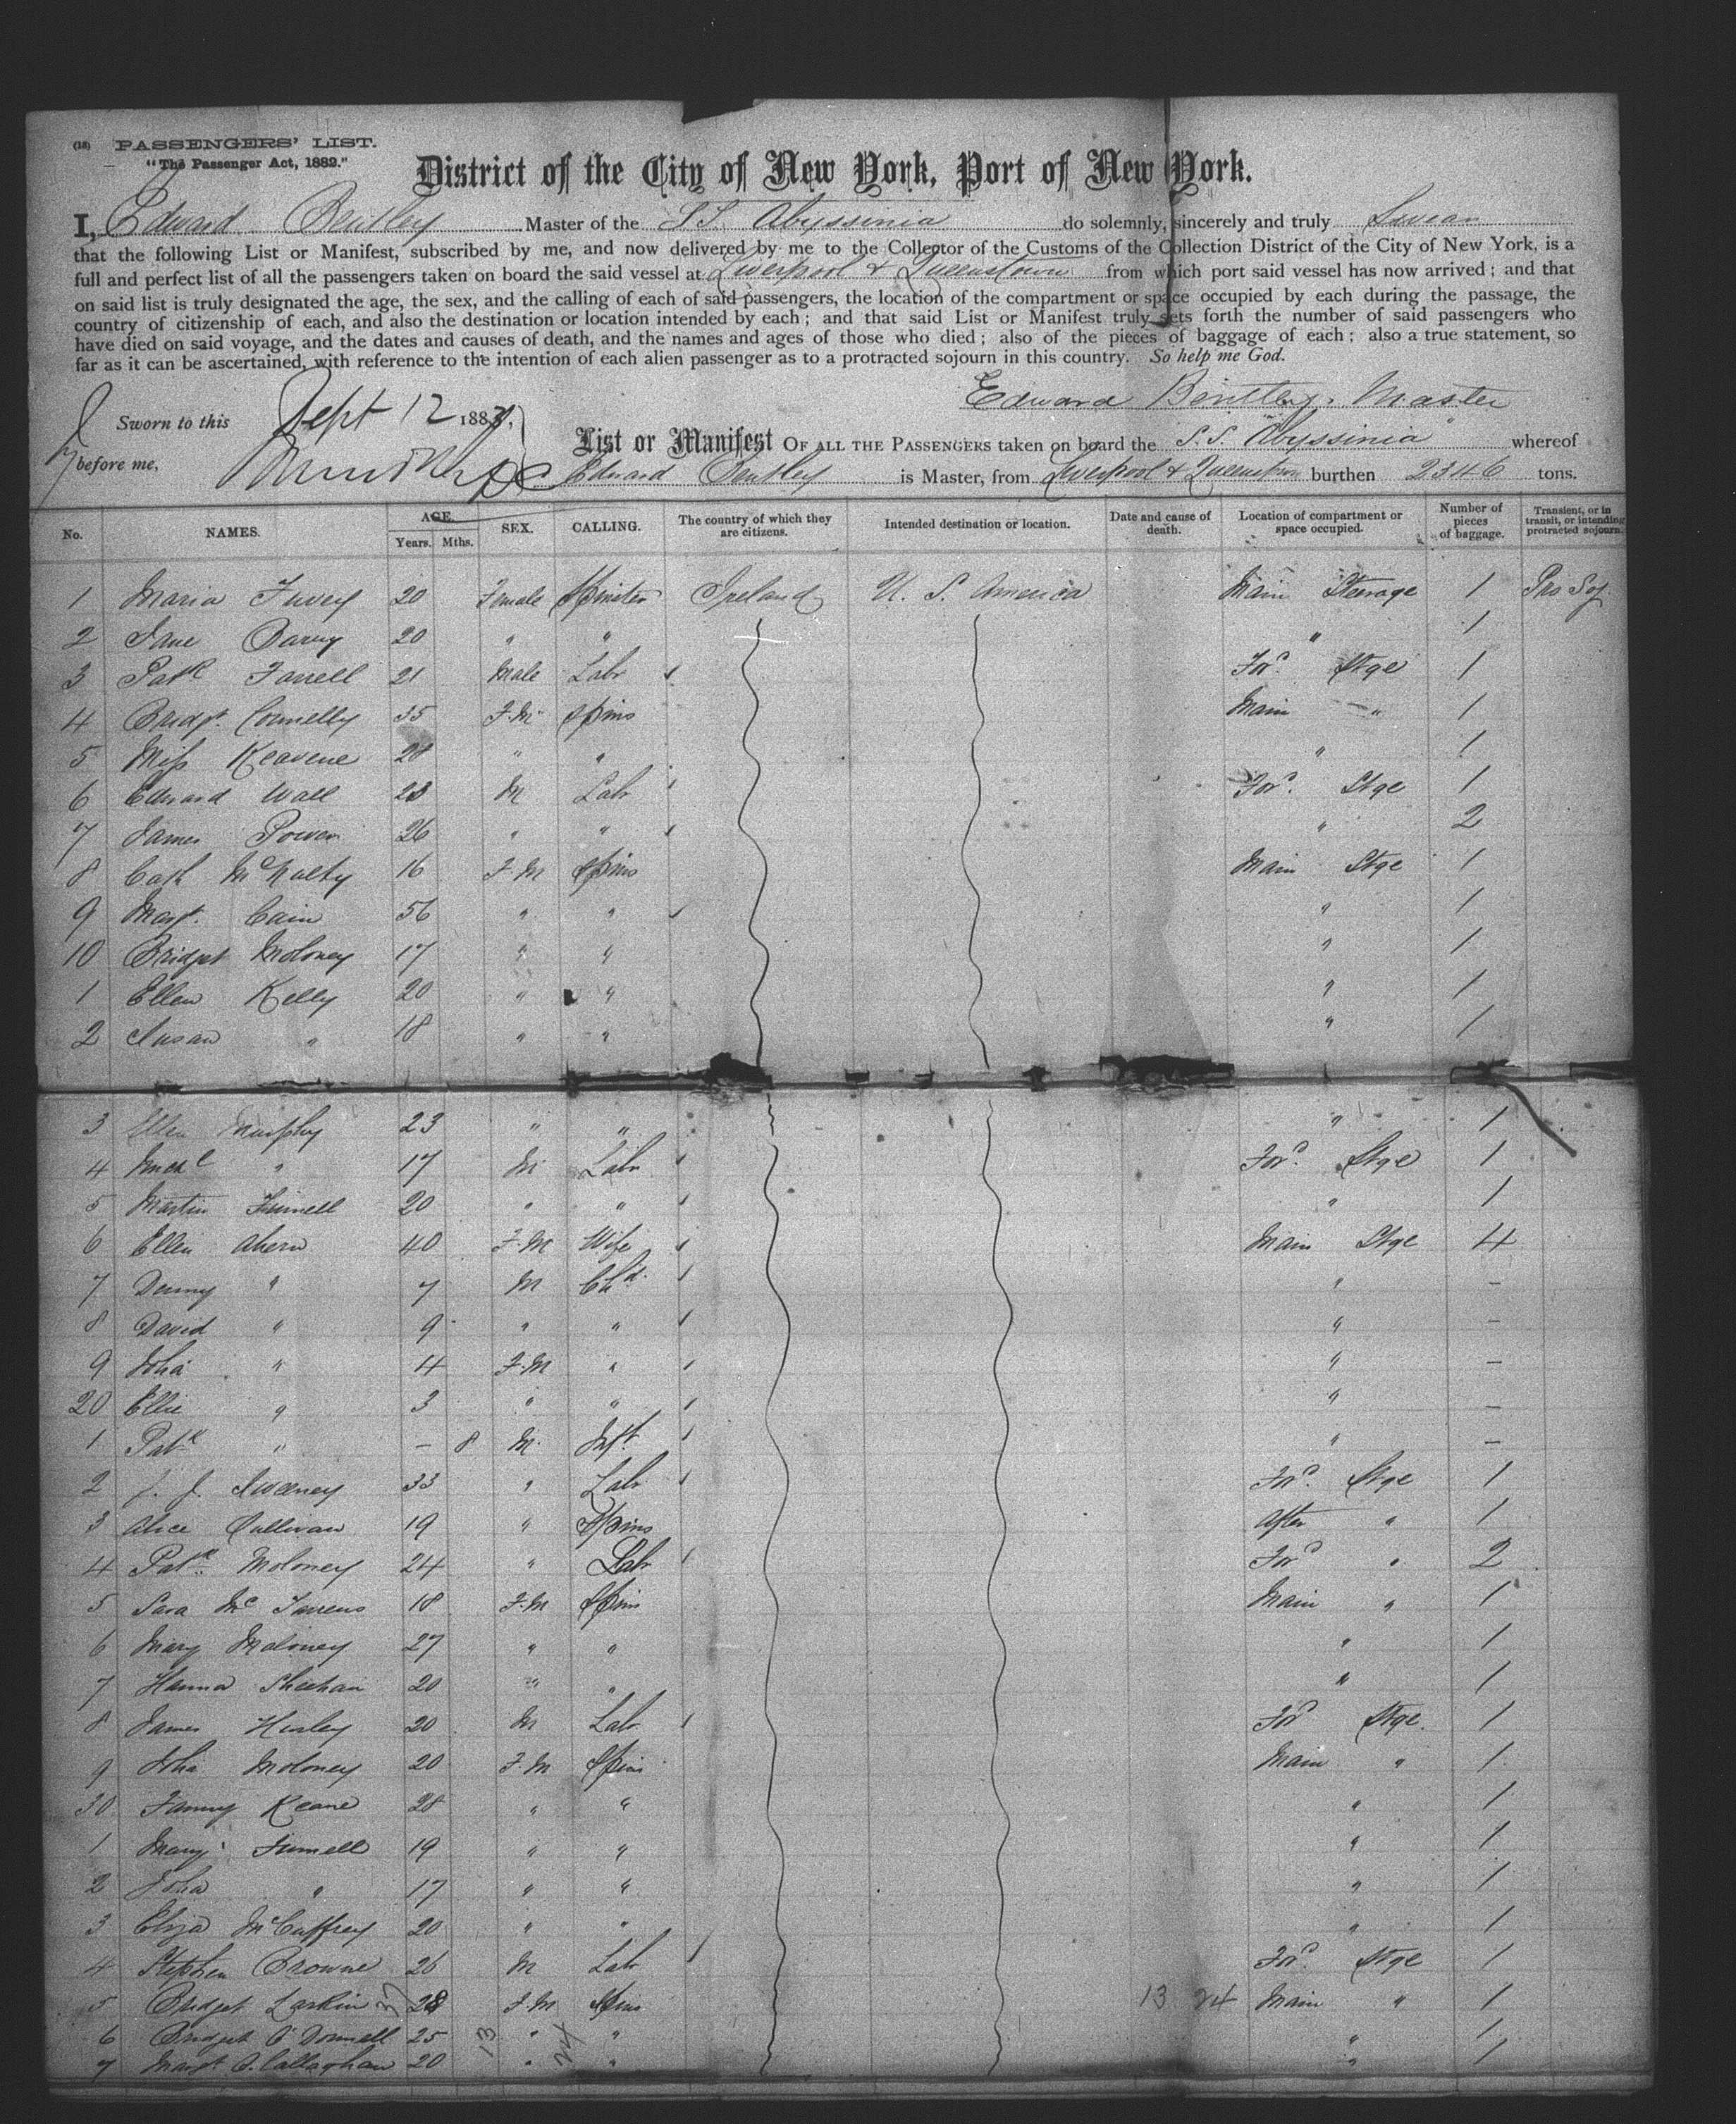 (18) PASSENGERS' LIST.
"The Passenger Act, 1882."
District of the City of New York, Port of New York.
I, Edward Bentley Master of the S.S. Abyssinia do solemnly, sincerely and truly Swear
that the following List or Manifest, subscribed by me, and now delivered by me to the Collector of the Customs of the Collection District of the City of New York, is a
full and perfect list of all the passengers taken on board the said vessel at Liverpool & Queenstown from which port said vessel has now arrived; and that
on said list is truly designated the age, the sex, and the calling of each of said passengers, the location of the compartment or space occupied by each during the passage, the
country of citizenship of each, and also the destination or location intended by each; and that said List or Manifest truly sets forth the number of said passengers who
have died on said voyage, and the dates and causes of death, and the names and ages of those who died; also of the pieces of baggage of each: also a true statement, so
far as it can be ascertained, with reference to the intention of each alien passenger as to a protracted sojourn in this country. So help me God.
Edward Bentley, Master
Sworn to this Sept 12 188
before me,
List or Manifest OF ALL THE PASSENGERS taken on board the S.S. Abyssinia whereof
Edward Bentley is Master, from Liverpool & Queenstown burthen 2346 tons.
No. NAMES. AGE. Years. Mths. SEX. CALLING. The country of which they are citizens. Intended destination or location. Date and cause of death. Location of compartment or space occupied. Number of pieces of baggage. Transient, or in transit, or intending protracted sojourn.
1 Maria 20 Female Spinster Ireland U. S. America Main Steerage 1 Pro Soj.
2 Jane 20 " " " 1
3 Patk Farrell 21 Male Labr Ford Stge 1
4 Bridgt. Connelly 35 F.M. Spins Main " 1
5 Miss Keavene " " " 1
6 Edward Wall 23 M Labr Ford Stge 1
7 James Power 26 " " " 2
8 Cath McNulty 16 F M Spins Main Stge 1
9 Margt. Cain 56 " " " 1
10 Bridget Moloney 17 " " " 1
1 Ellen Kelly 20 " " " 1
2 Susan " 18 " " " 1
3 Ellen Murphy 23 " " " 1
4 Michl " 17 M Labr Ford Stge 1
5 Martin 20 " " " 1
6 Ellen Ahern 40 F.M Wife Main Stge 4
7 Denny " 7 M Chd. " –
8 David " 9 " " " –
9 Joha " 4 F.M " " –
20 Ellie " 3 " " " –
1 Patk " – 8 M. Inft. " –
2 J. J. Sweeney 33 " Labr Ford Stge 1
3 Alice Sullivan 19 " Spins After " 1
4 Patk. Moloney 24 " Labr Ford " 2
5 Sara Mc 18 F.M Spins Main " 1
6 Mary Moloney 27 " " " 1
7 Hanna Sheehan 20 " " " 1
8 James Hurley 20 M Labr Ford Stge. 1
9 Joha Moloney 20 F.M Spins Main " 1
30 Fanny Keane 28 " " " 1
1 Mary 19 " " " 1
2 Joha " 17 " " " 1
3 Eliza McCaffrey 20 " " " 1
4 Stephen Browne 26 M Labr Ford Stge 1
5 Bridget Larkin 28 F.M Spins 13 24 Main " 1
6 Bridget O'Donnell 25 13 " 24 " " 1
7 Margt O.Callaghan 20 " " " 1